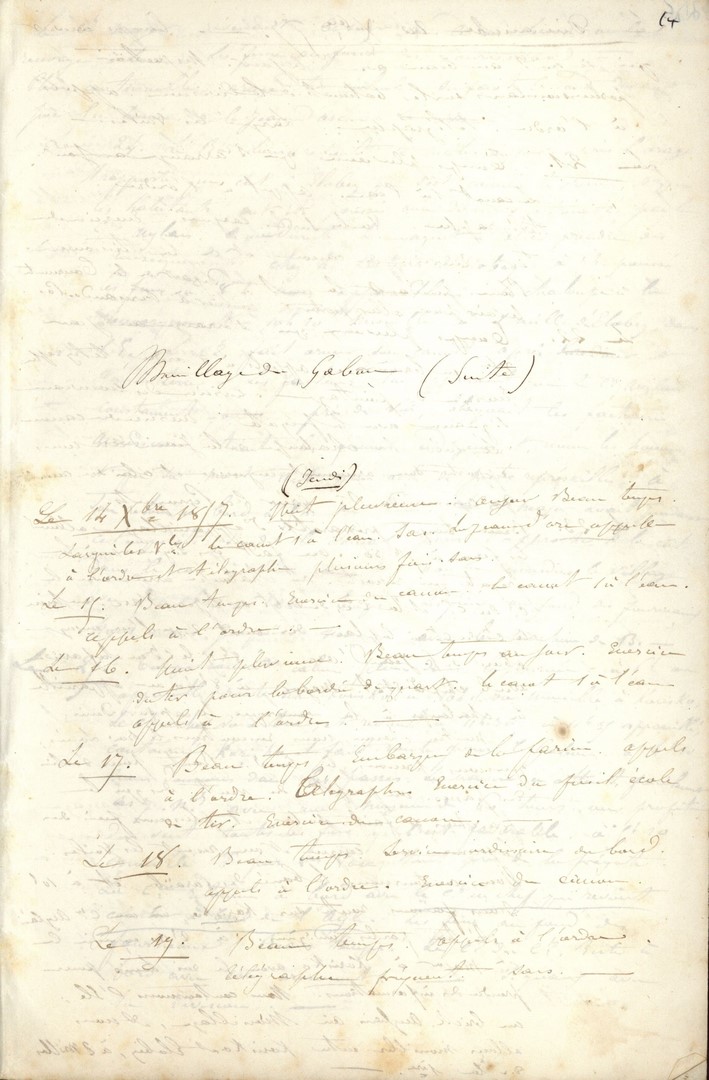 14
Mouillage du Gabon (Suite)
(Jeudi)
Le 14 Xbre 1847. Nuit pluvieuse. au jour Beau temps.
Largué les Vles le canot 1 à l'eau. appelle
à l'ordre et télégraphe plusieurs fois.
Le 15. Beau temps. Exercice du canon. le canot 1 à l'eau.
appels à l'ordre. —
Le 16. Nuit pluvieuse. Beau temps au jour. Exercice
du ter pour la bordée de quart. le canot 1 à l'eau
appels à l'ordre. —
Le 17. Beau temps. Embarqué de la farine. appels
à l'ordre. Télégraphe. Exercice du fusil, école
de ter. Exercice du canon.
Le 18. Beau temps Service ordinaire du bord.
appels à l'ordre. Exercice du canon.
Le 19. Beau temps. appels à l'ordre.
télégraphe fréquent. —